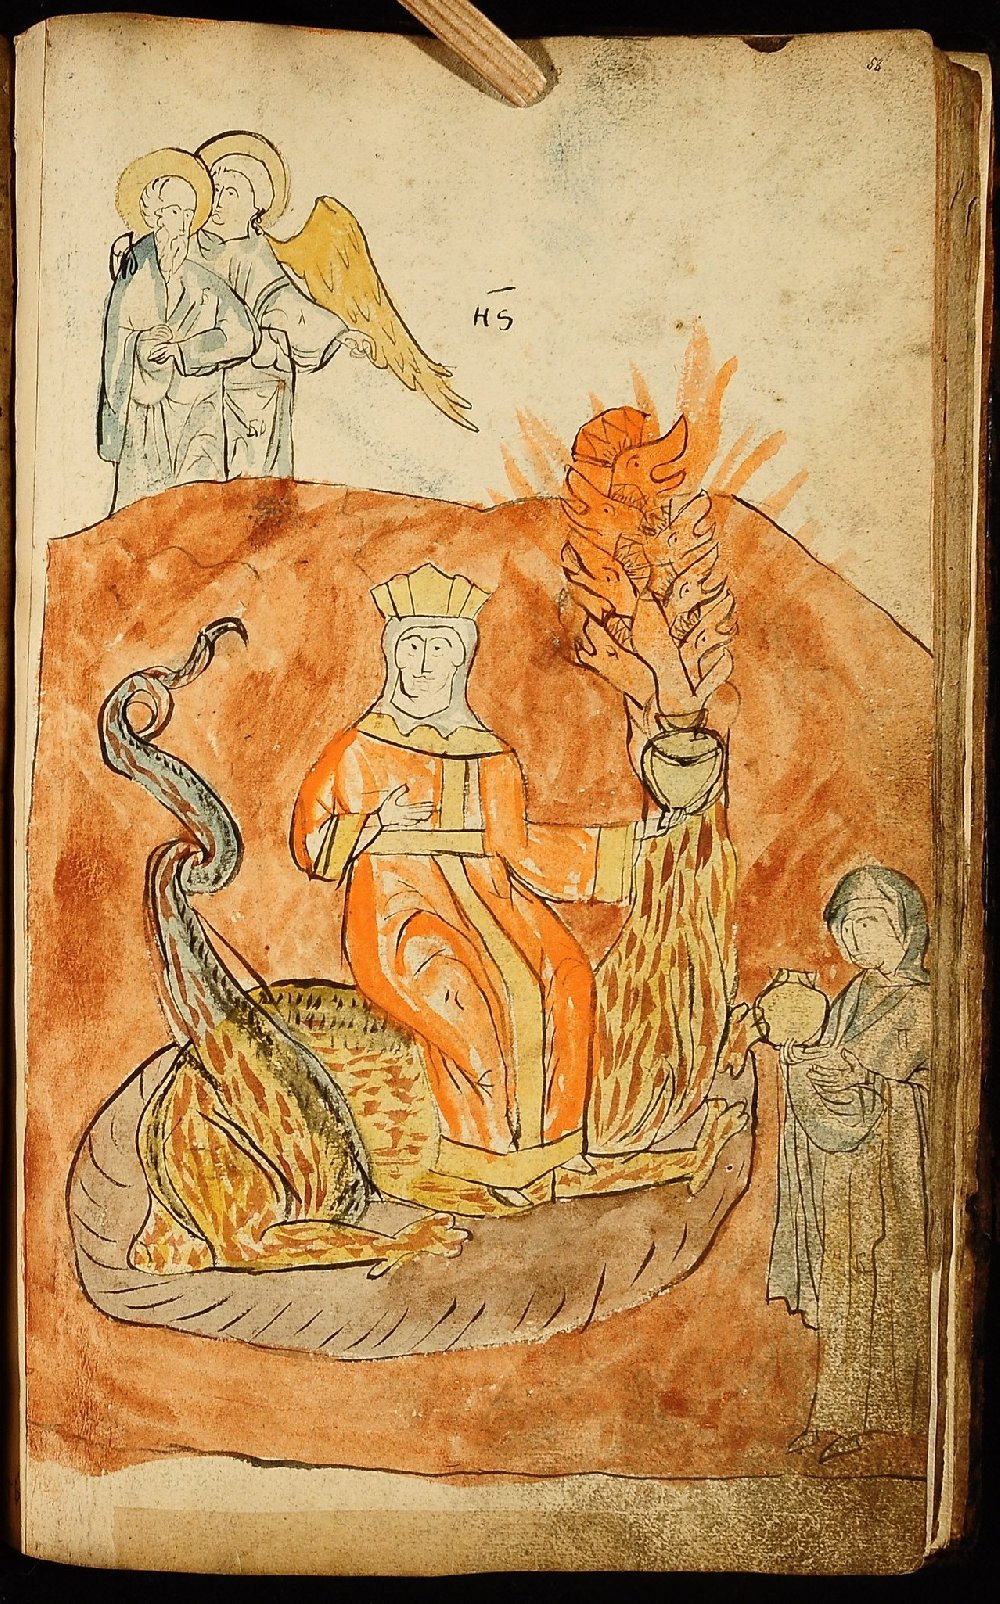 56
н҃ѕ